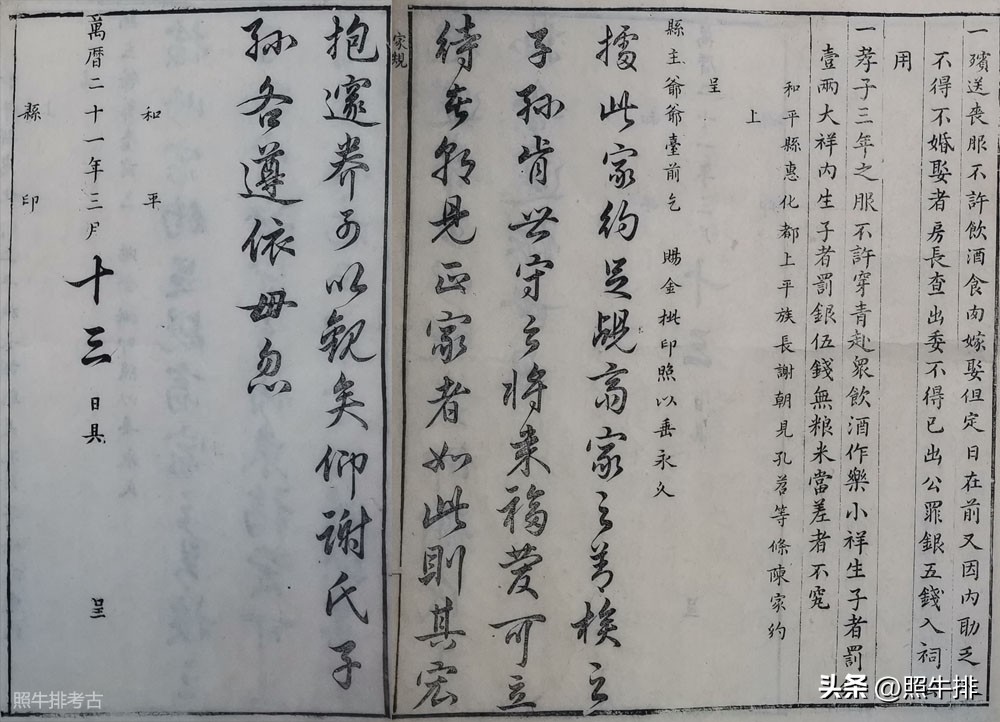 一殯送喪服不許飲酒食肉嫁娶但定日在前又因內助乏
不得不婚娶者房長查出委不得已出公罪銀五錢入祠
用
一孝子三年之服不許穿青赴眾飲酒作樂小祥生子者罰
壹兩大祥內生子者罰銀伍錢無粮米當差者不究
和平縣惠化都上平族長謝朝見孔若等條陳家約
上
呈
縣主爺爺臺前乞 賜金批印照以垂永久
擂此家約足覘高家之善模之
子孫肯世守之將来福蔭可立
待吾邑見正家者如此則其宏
家規
抱邃養可以觀矣仰謝氏子
孫各遵依毋忽
和平
萬曆二十一年三月十三日具呈
縣印
照牛排考古
头条 @照牛排